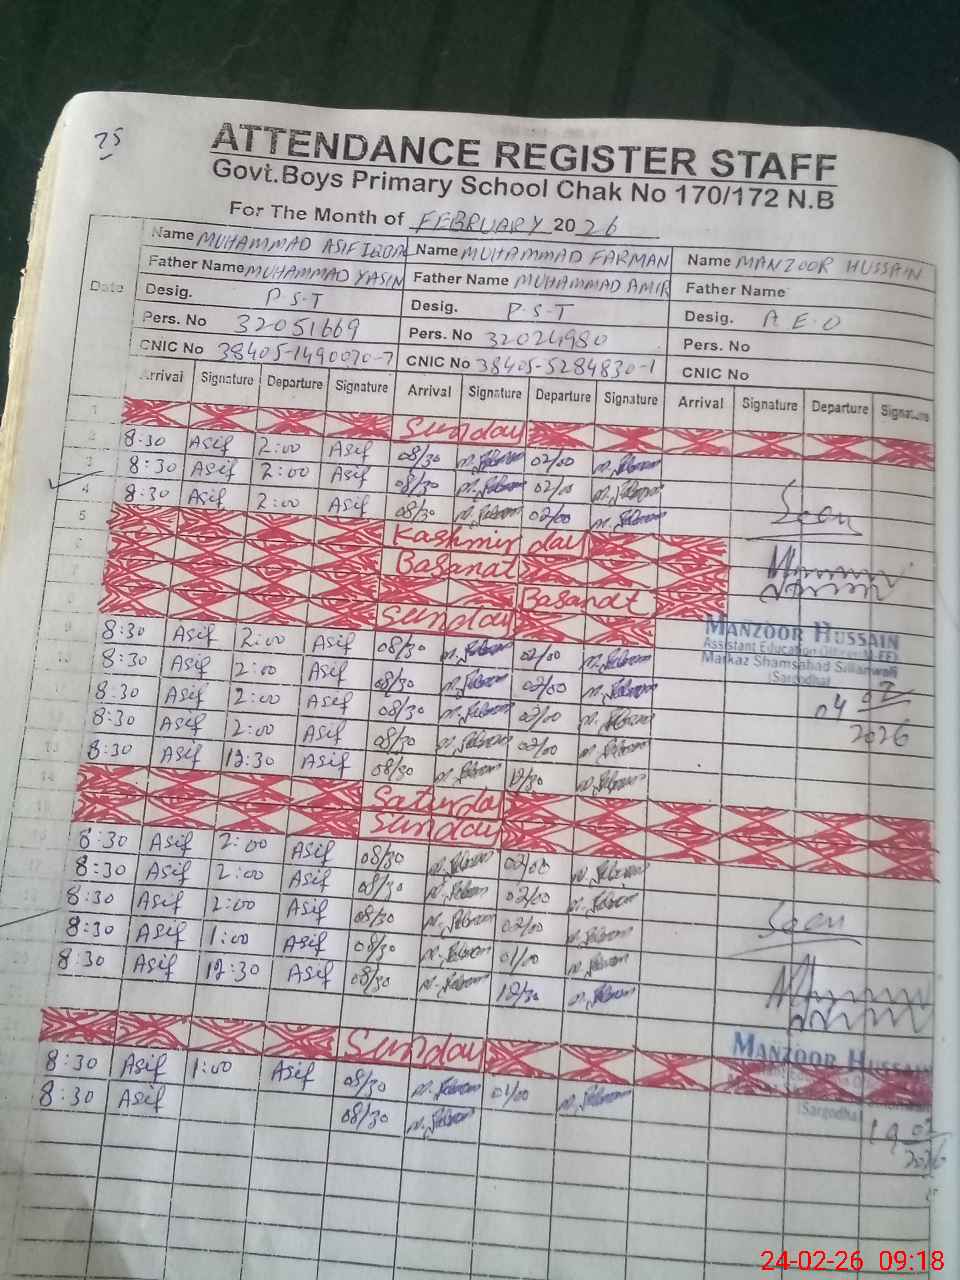 25
ATTENDANCE REGISTER STAFF
Govt.Boys Primary School Chak No 170/172 N.B
For The Month of FEBRUARY 2026
Date
Name MUHAMMAD ASIF IQBAL Name MUHAMMAD FARMAN Name MANZOOR HUSSAIN
Father Name MUHAMMAD YASIN Father Name MUHAMMAD AMIR Father Name
Desig. P-S-T Desig. P-S-T Desig. A E O
Pers. No 32051669 Pers. No 32024980 Pers. No
CNIC No 38405-1490070-7 CNIC No 38405-5284830-1 CNIC No
Arrival Signature Departure Signature Arrival Signature Departure Signature Arrival Signature Departure Signature
1 Sunday
2 8:30 Asif 2:00 Asif 08/30 02/00
3 8:30 Asif 2:00 Asif 08/30 02/00
4 8:30 Asif 2:00 Asif 08/30 02/00 Seen
5 Kashmir day
6 Basanat
7 Basanat
8 Sunday
9 8:30 Asif 2:00 Asif 08/30 02/00
MANZOOR HUSSAIN
Assistant Education Officer
Markaz Shamsabad Sillanwali
(Sargodha)
10 8:30 Asif 2:00 Asif 08/30 02/00
11 8:30 Asif 2:00 Asif 08/30 02/00 04 02
12 8:30 Asif 2:00 Asif 08/30 02/00 2026
13 8:30 Asif 12:30 Asif 08/30 12/30
14 Saturday
15 Sunday
16 8:30 Asif 2:00 Asif 08/30 02/00
17 8:30 Asif 2:00 Asif 08/30 02/00
18 8:30 Asif 2:00 Asif 08/30 02/00 Seen
8:30 Asif 1:00 Asif 08/30 01/00
20 8:30 Asif 12:30 Asif 08/30 12/30
Sunday
MANZOOR HUSSAIN
8:30 Asif 1:00 Asif 08/30 01/00
8:30 Asif 08/30
(Sargodha)
19 02
2026
24-02-26 09:18